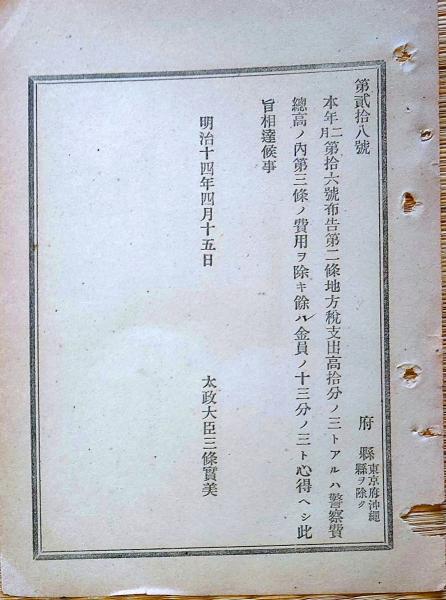 第貳拾八號
府縣 東京府沖繩
縣ヲ除ク
本年二月第拾六號布告第二條地方税支出高拾分ノ三トアルハ警察費
總高ノ內第三條ノ費用ヲ除キ餘ル金員ノ十三分ノ三ト心得ヘシ此
旨相達候事
明治十四年四月十五日
太政大臣三條實美